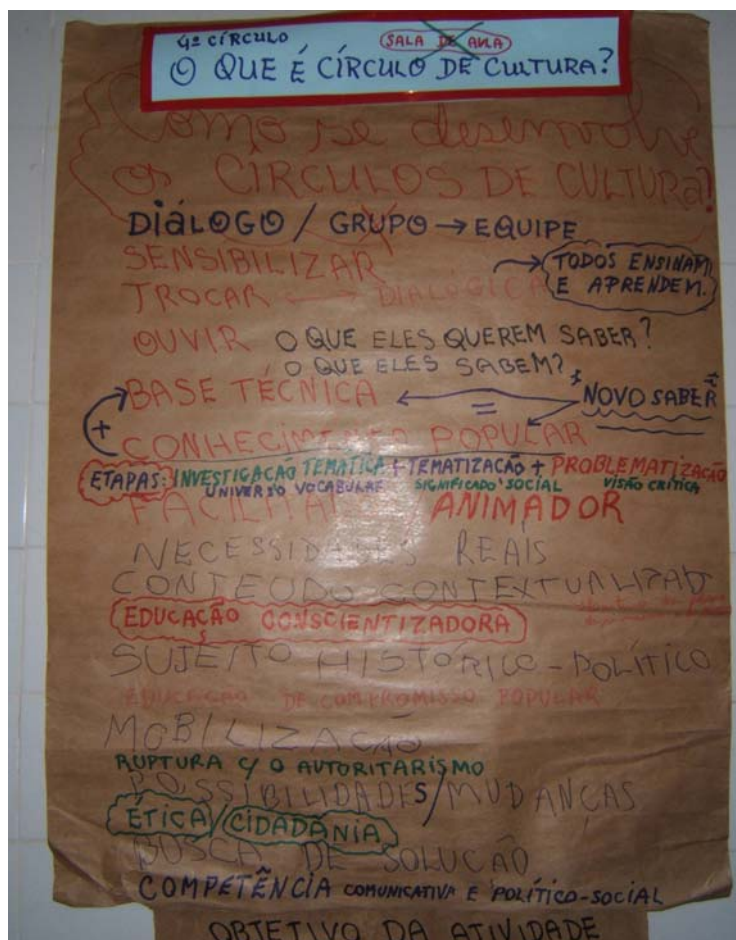 4º CÍRCULO SALA DE AULA
O QUE É CÍRCULO DE CULTURA?
Como se desenvolve
os CÍRCULOS DE CULTURA?
DIÁLOGO / GRUPO → EQUIPE
SENSIBILIZAR
TODOS ENSINAM
TROCAR ↔ DIALÓGICA
E APRENDEM.
OUVIR O QUE ELES QUEREM SABER?
O QUE ELES SABEM?
BASE TÉCNICA
= NOVO SABER
+
CONHECIMENTO POPULAR
ETAPAS: INVESTIGAÇÃO TEMÁTICA + TEMATIZAÇÃO + PROBLEMATIZAÇÃO
UNIVERSO VOCABULAR SIGNIFICADO SOCIAL VISÃO CRÍTICA
FACILITAR ANIMADOR
NECESSIDADES REAIS
CONTEÚDO CONTEXTUALIZAD
EDUCAÇÃO CONSCIENTIZADORA
SUJEITO HISTÓRICO-POLÍTICO
EDUCAÇÃO DE COMPROMISSO POPULAR
MOBILIZAÇÃO
RUPTURA C/ O AUTORITARISMO
POSSIBILIDADES/MUDANÇAS
ÉTICA/CIDADANIA
BUSCA DE SOLUCÃO
COMPETÊNCIA COMUNICATIVA E POLÍTICO-SOCIAL
OBJETIVO DA ATIVIDADE